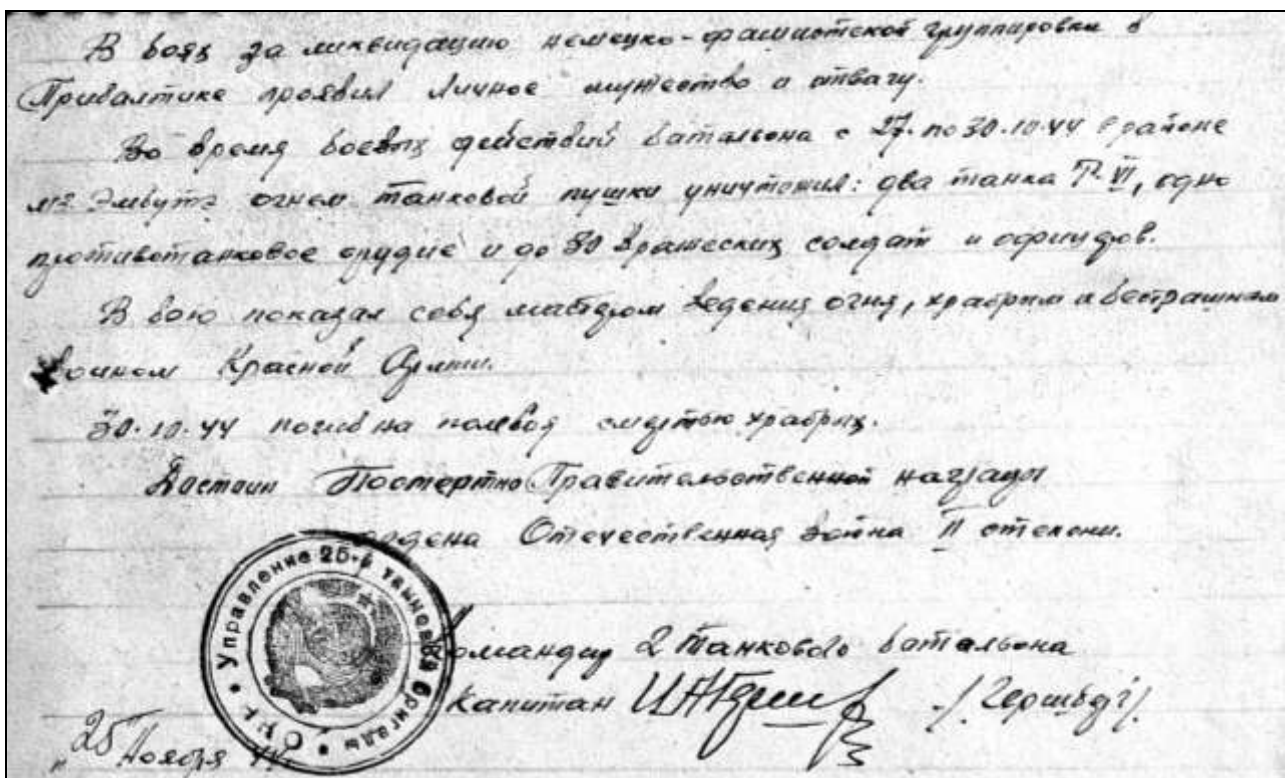 В боях за ликвидацию немецко-фашистской группировки в
Прибалтике проявил личное мужество и отвагу.
Во время боевых действий батальона с 27. по 30.10.44 в районе
мз. Эмбутэ огнем танковой пушки уничтожил: два танка Т-VI, одно
противотанковое орудие и до 30 вражеских солдат и офицеров.
В бою показал себя мастером ведения огня, храбрым и бестрашным
воином Красной Армии.
30.10.44 погиб на поле боя смертью храбрых.
Достоин Посмертно Правительственной награды
ордена Отечественная война II степени.
Управление 25-й танковой бригады
Командир 2 танкового батальона
Капитан
"25" Ноября 44